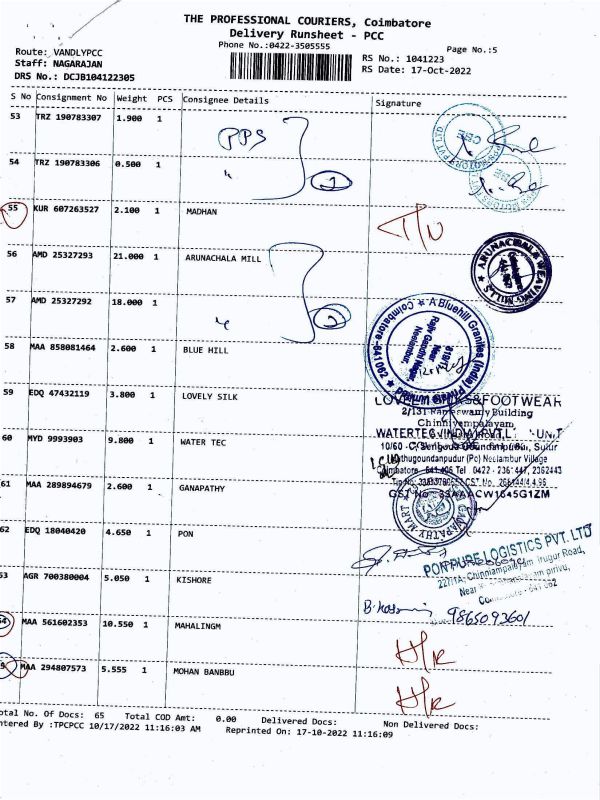 THE PROFESSIONAL COURIERS, Coimbatore
Delivery Runsheet - PCC
Phone No.:0422-3505555
Page No.:5
Route: VANDLYPCC
Staff: NAGARAJAN
DRS No.: DCJB104122305
RS No.: 1041223
RS Date: 17-Oct-2022
S No Consignment No Weight PCS Consignee Details Signature
53 TRZ 190783307 1.900 1 PPS
54 TRZ 190783306 0.500 1 " 2
55 KUR 607263527 2.100 1 MADHAN
56 AMD 25327293 21.000 1 ARUNACHALA MILL
ARUNACHALA WEAVING MILLS
57 AMD 25327292 18.000 1 " 2
A Bluehill Granites (India) Private Limited
Near
Rajiv Gandhi Nagar,
Neelambur,
Coimbatore-641062
58 MAA 858081464 2.600 1 BLUE HILL
59 EDQ 47432119 3.800 1 LOVELY SILK
&FOOTWEAR
2/131 Building
Chinniyampalayam
60 MYD 9993903 9.800 1 WATER TEC
WATERTEC UNIT
10/60 Sulur
Muthugoundanpudur (Po) Neelambur Village
Tel 0422 - 236 447, 2362443
GST No 33AAACW1645G1ZM
61 MAA 289894679 2.600 1 GANAPATHY
GANAPATHY MART
62 EDQ 18040420 4.650 1 PON
PONPURE LOGISTICS PVT. LTD
227/1A, Chinniampalayam Irugur Road,
Near
63 AGR 700380004 5.050 1 KISHORE
9865093601
64 MAA 561602353 10.550 1 MAHALINGM
MAA 294807573 5.555 1 MOHAN BANBBU
otal No. Of Docs: 65 Total COD Amt: 0.00 Delivered Docs: Non Delivered Docs:
ntered By :TPCPCC 10/17/2022 11:16:03 AM Reprinted On: 17-10-2022 11:16:09